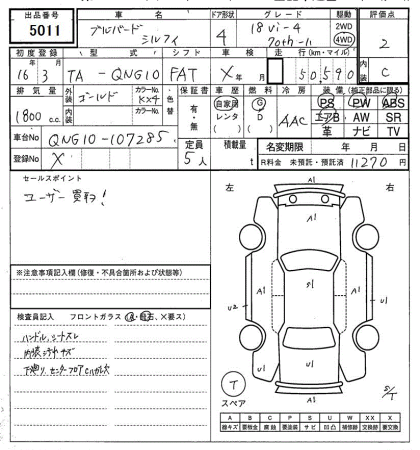 出品番号 車名 ドア形状 グレード 駆動 評価点
5011 ブルーバード シルフィ 4 18Vi-4 70th-II 2WD 4WD 2
初度登録 型式 シフト 車検 走行(km・マイル) 内装
16年 3月 TA-QNG10 FAT X年 月 50,590 C
排気量 外装 カラーNo. 色替 保証書 車歴 燃料 冷房 装備(純正部品に限る)
1800c.c. ゴールド KX4 有・無 自家用 レンタ G D AAC PS PW ABS
内装 カラーNo. エアB AW SR
革 ナビ TV
車台No QNG10-107285 定員 5人 積載量 t 名変期限 年 月 日
登録No X R料金 未預託・預託済 11270円
セールスポイント
ユーザー買取!
※注意事項記入欄(修復・不具合箇所および状態等)
検査員記入 フロントガラス(A・飛石、X要ス)
ハンドル、シートスレ
内装
下廻り
左 右
A1
A1
A1
S1
A1
A1
U2
U1
U1
U1
A1
T
スペア
S/T
A B C P S U W XX X
線キズ 要板金 腐蝕 要塗装 サビ 凹凸 補修跡 交換跡 要交換